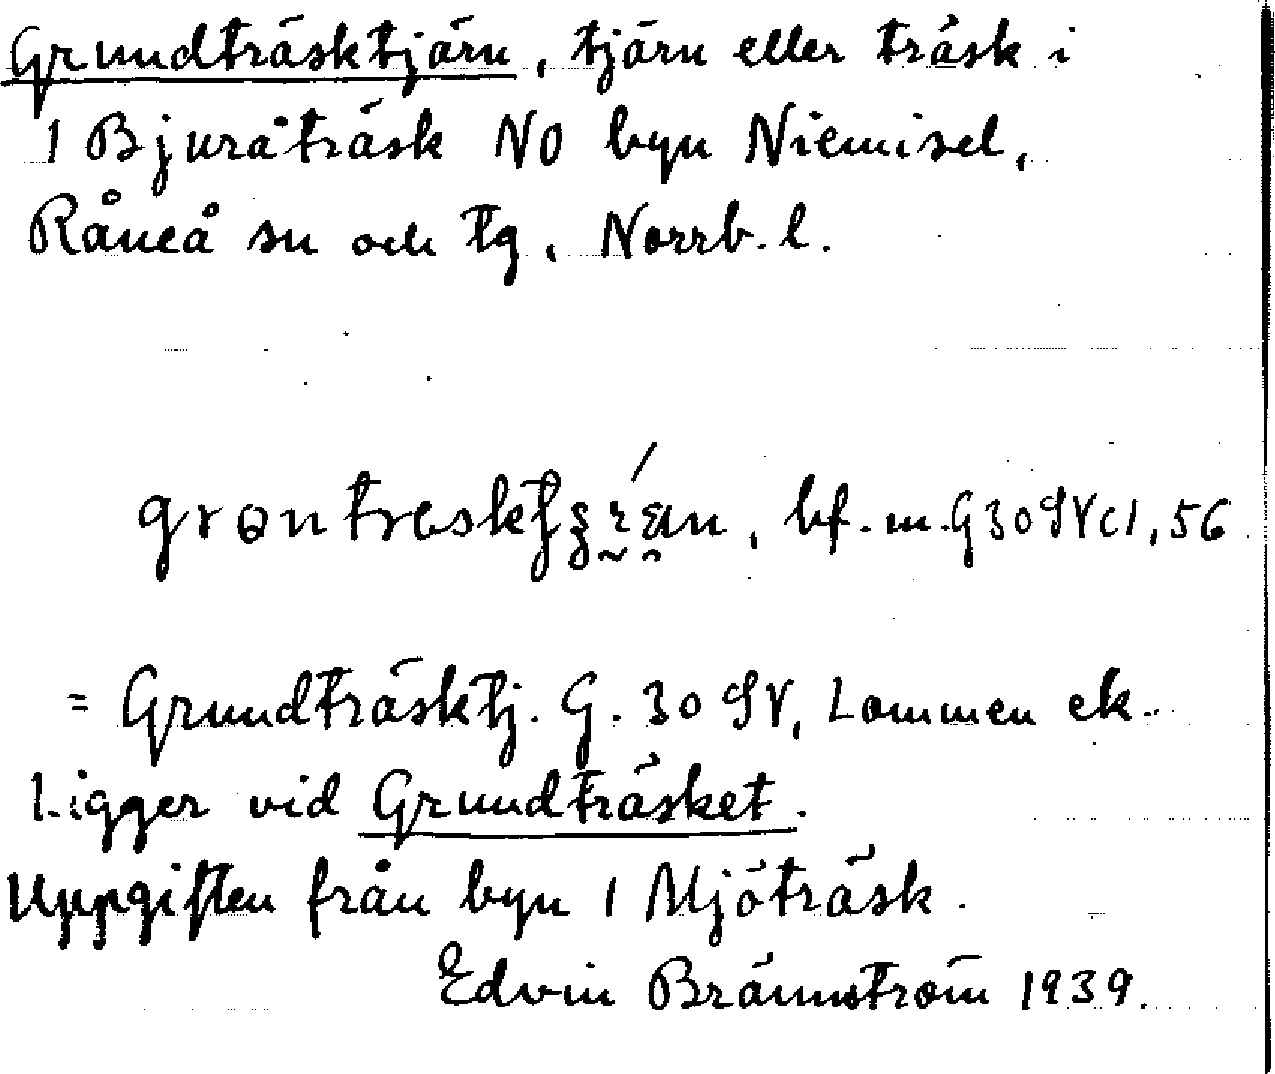 Grundträsktjärn, tjärn eller träsk i
1 Bjuråträsk NO byn Niemisel,
Råneå sn och tg, Norrb. l.
bf. m. G 30 SV c1, 56
= Grundträsktj. G. 30 SV, Lommen ek.
Ligger vid Grundträsket.
Uppgiften från byn 1 Mjöträsk.
Edvin Brännström 1939.